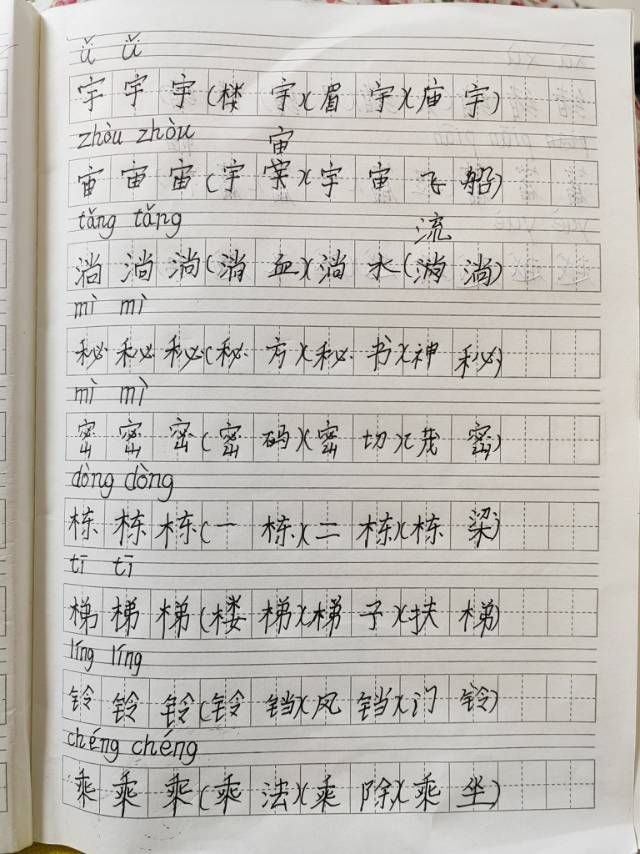 ǚ ǚ
宇宇宇(楼宇)(眉宇)(庙宇)
zhòu zhòu
宙
宙宙宙(宇案)(宇宙飞船)
tǎng tǎng
流
淌淌淌(淌血)(淌水)(游淌)
mì mì
秘秘秘(秘方)(秘书)(神秘)
mì mì
密密密(密码)(密切)(茂密)
dòng dòng
栋栋栋(一栋)(二栋)(栋梁)
tī tī
梯梯梯(楼梯)(梯子)(扶梯)
líng líng
铃铃铃(铃铛)(风铛)(门铃)
chéng chéng
乘乘乘(乘法)(乘除)(乘坐)